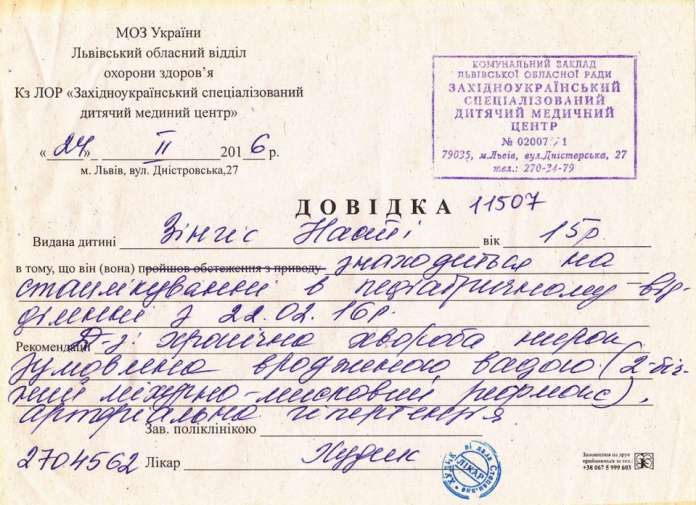 МОЗ України
Львівський обласний відділ
охорони здоров’я
Кз ЛОР «Західноукраїнський спеціалізований
дитячий мединий центр»
« 24 » II 2016 р.
м. Львів, вул. Дністровська,27
КОМУНАЛЬНИЙ ЗАКЛАД
ЛЬВІВСЬКОЇ ОБЛАСНОЇ РАДИ
ЗАХІДНОУКРАЇНСЬКИЙ
СПЕЦІАЛІЗОВАНИЙ
ДИТЯЧИЙ МЕДИЧНИЙ
ЦЕНТР
79035, м.Львів, вул.Дністерська, 27
тел.: 270-34-79
ДОВІДКА 11507
Видана дитині Зінгіс Насті вік 15р
в тому, що він (вона) пройшов обстеження з приводу знаходиться на
стацлікуванні в педіатричному від-
діленні з 22.02.16р.
Рекомендації Д-з: хронічна хвороба нирок
зумовлена вродженою вадою (2-біч-
ний міхурно-мисковий рефлюкс),
артеріальна гіпертензія.
Зав. поліклінікою
2704562 Лікар Худик
ЛІКАР
Замовлення на друк
приймаються за тел.:
+38 067 5 999 603